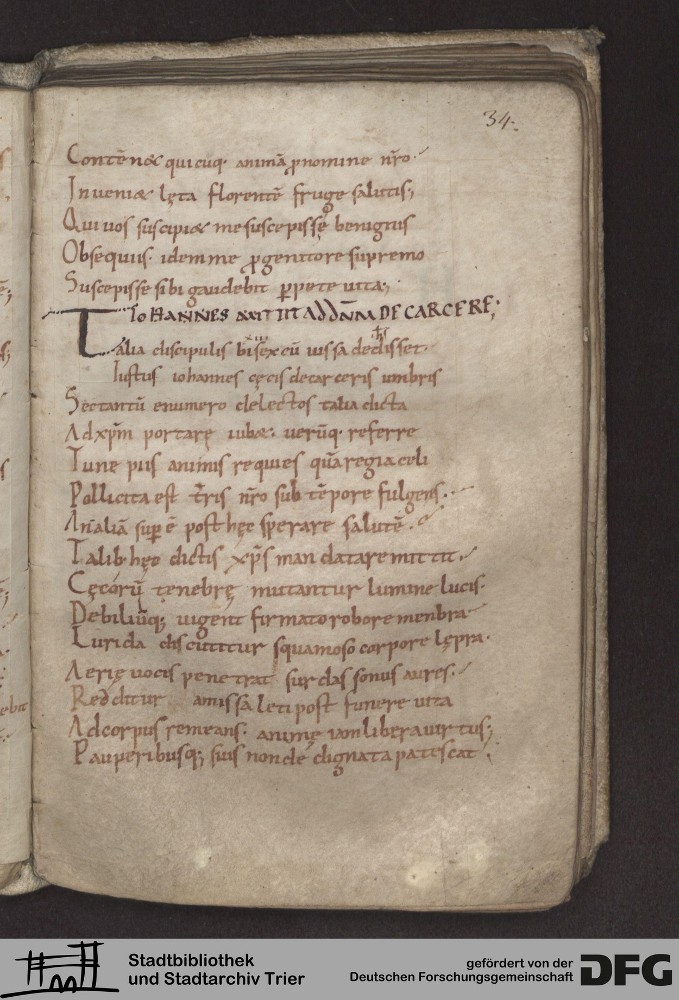 34.
Contēnet qui cūq· animā ꝓ nomine nr̄o·
Inveniæ lęta florentē fruge salutis;
Qui vos suscipiæ me suscepisse benignus
Obsequiis· idem me ꝓgenitore supremo
Suscepisse sibi gaudebit ꝑpete vita;
IOHANNES MITTIT AD DN̄M DE CARCERE;
Talia discipulis bis ex cū iussa dedisset·
ih̄s
Iustus iohannes cęcis de carceris umbris
Sectantū e numero delectos talia dicta
Ad xp̄m portare iubæ· verūq· referre
Tune pius animis requies quā regia celi
Pollicita est tr̄ris nr̄o sub tēpore fulgens·
An aliā suꝑ ē post hęc sperare salutē·
Talib· hęc dictis xp̄s mandata remittit·
Cęcorū tenebrę mutantur lumine lucis·
Debiliūq; vigent firmato robore menbra
Lurida discutitur squamoso corpore lępra·
Aerię vocis penetrat surdas sonus aures·
Redditur amissa leti post funere vita
Ad corpus remeans· animę iam libera virtus;
Pauperibusq; suis non dedignata patescat·
Stadtbibliothek
und Stadtarchiv Trier
gefördert von der
Deutschen Forschungsgemeinschaft
DFG